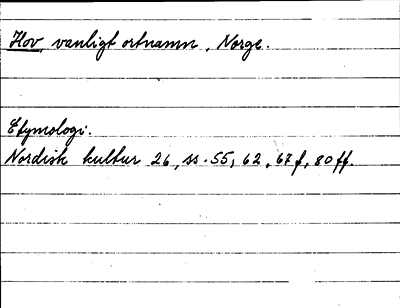 Hov, vanligt ortnamn, Norge.
Etymologi.
Nordisk kultur 26, ss. 55, 62, 67f, 80ff.